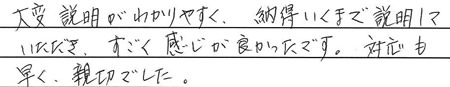 大変説明がわかりやすく、納得いくまで説明して
いただき、すごく感じが良かったです。対応も
早く、親切でした。